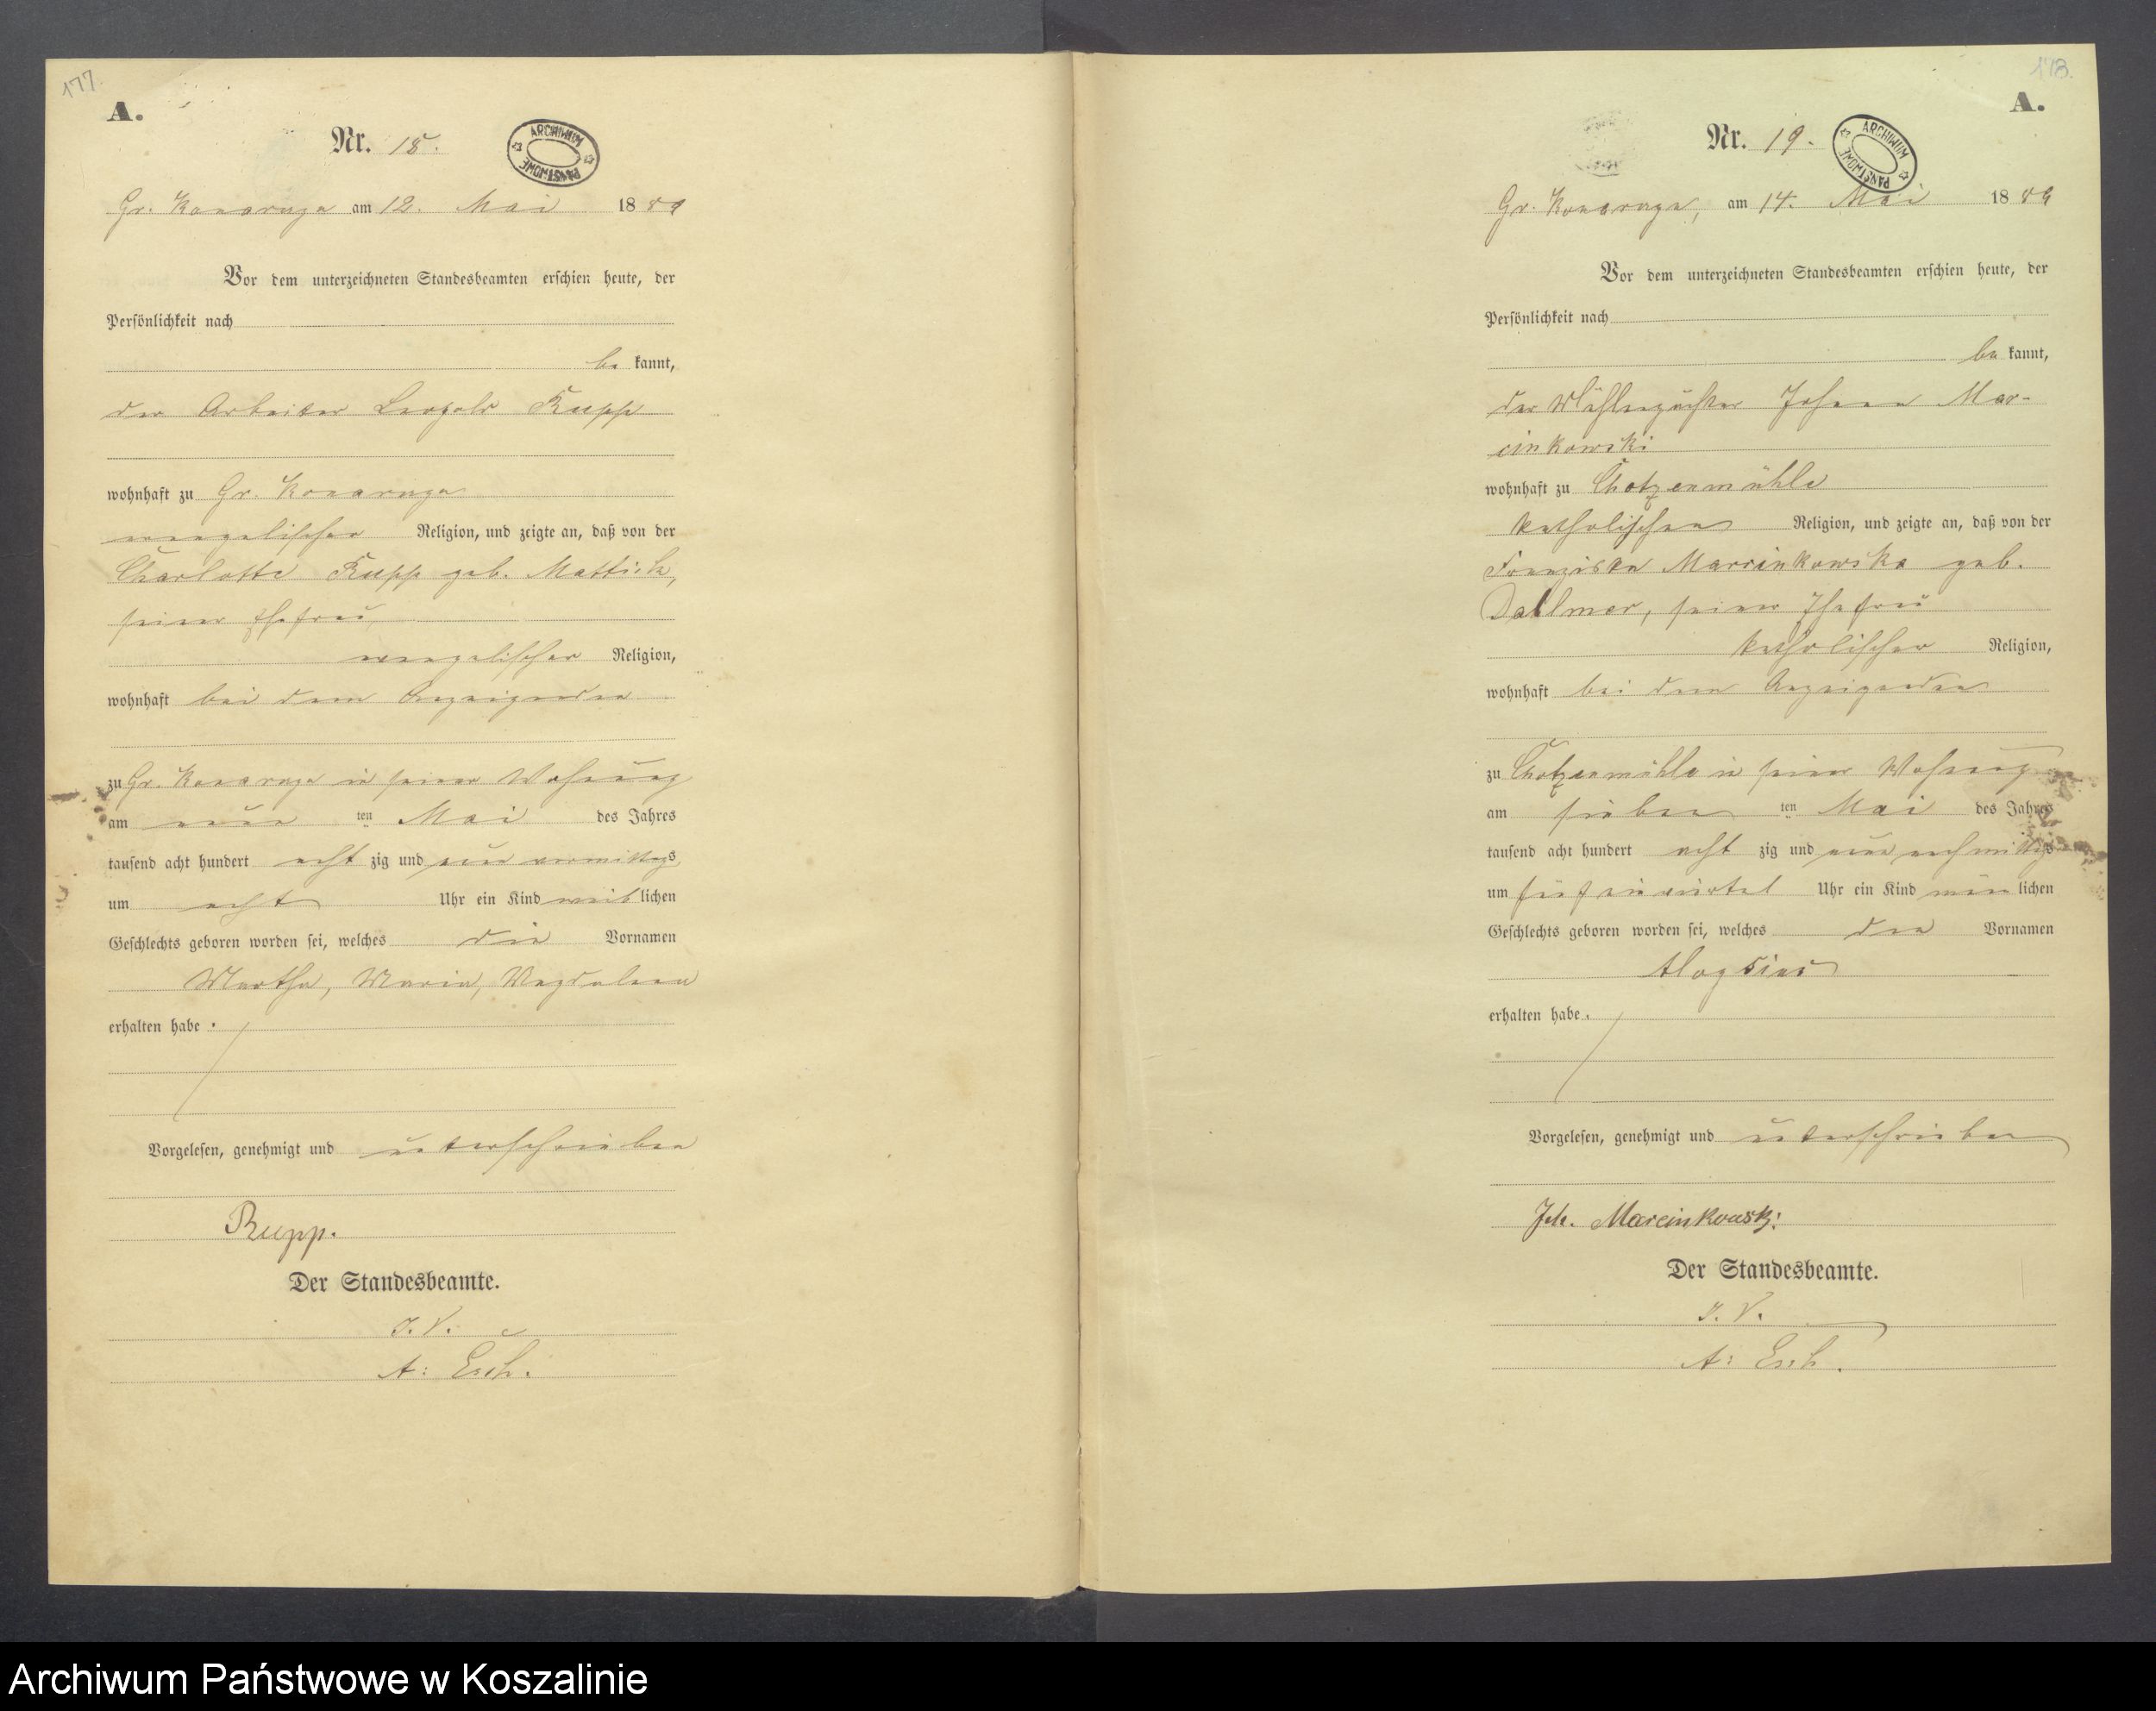 177.
A.
Nr. 18.
ARCHIWUM PAŃSTWOWE
Gr. Konarzyn am 12. Mai 1889
Vor dem unterzeichneten Standesbeamten erschien heute, der
Persönlichkeit nach
be kannt,
der Arbeiter Leopold Rupp
wohnhaft zu Gr. Konarzyn
evangelischer Religion, und zeigte an, daß von der
Charlotte Rupp geb. Mattick,
seiner Ehefrau,
evangelischer Religion,
wohnhaft bei dem Anzeigenden
zu Gr. Konarzyn in seiner Wohnung
am neun ten Mai des Jahres
tausend acht hundert acht zig und neun vormittags
um acht Uhr ein Kind weib lichen
Geschlechts geboren worden sei, welches die Vornamen
Martha, Maria, Magdalena
erhalten habe.
Vorgelesen, genehmigt und unterschrieben
Rupp.
Der Standesbeamte.
I. V.
A: Esch.
178.
A.
Nr. 19.
ARCHIWUM PAŃSTWOWE
Gr. Konarzyn, am 14. Mai 1889
Vor dem unterzeichneten Standesbeamten erschien heute, der
Persönlichkeit nach
be kannt,
der Mühlenpächter Johann Mar-
cinkowski
wohnhaft zu Chotzenmühle
katholischen Religion, und zeigte an, daß von der
Franziska Marcinkowska geb.
Dallmer, seiner Ehefrau
katholischer Religion,
wohnhaft bei dem Anzeigenden
zu Chotzenmühle in seiner Wohnung
am sieben ten Mai des Jahres
tausend acht hundert acht zig und neun nachmittags
um fünf ein viertel Uhr ein Kind män lichen
Geschlechts geboren worden sei, welches den Vornamen
Aloysius
erhalten habe.
Vorgelesen, genehmigt und unterschrieben
Joh. Marcinkowski
Der Standesbeamte.
I. V.
A: Esch.
Archiwum Państwowe w Koszalinie